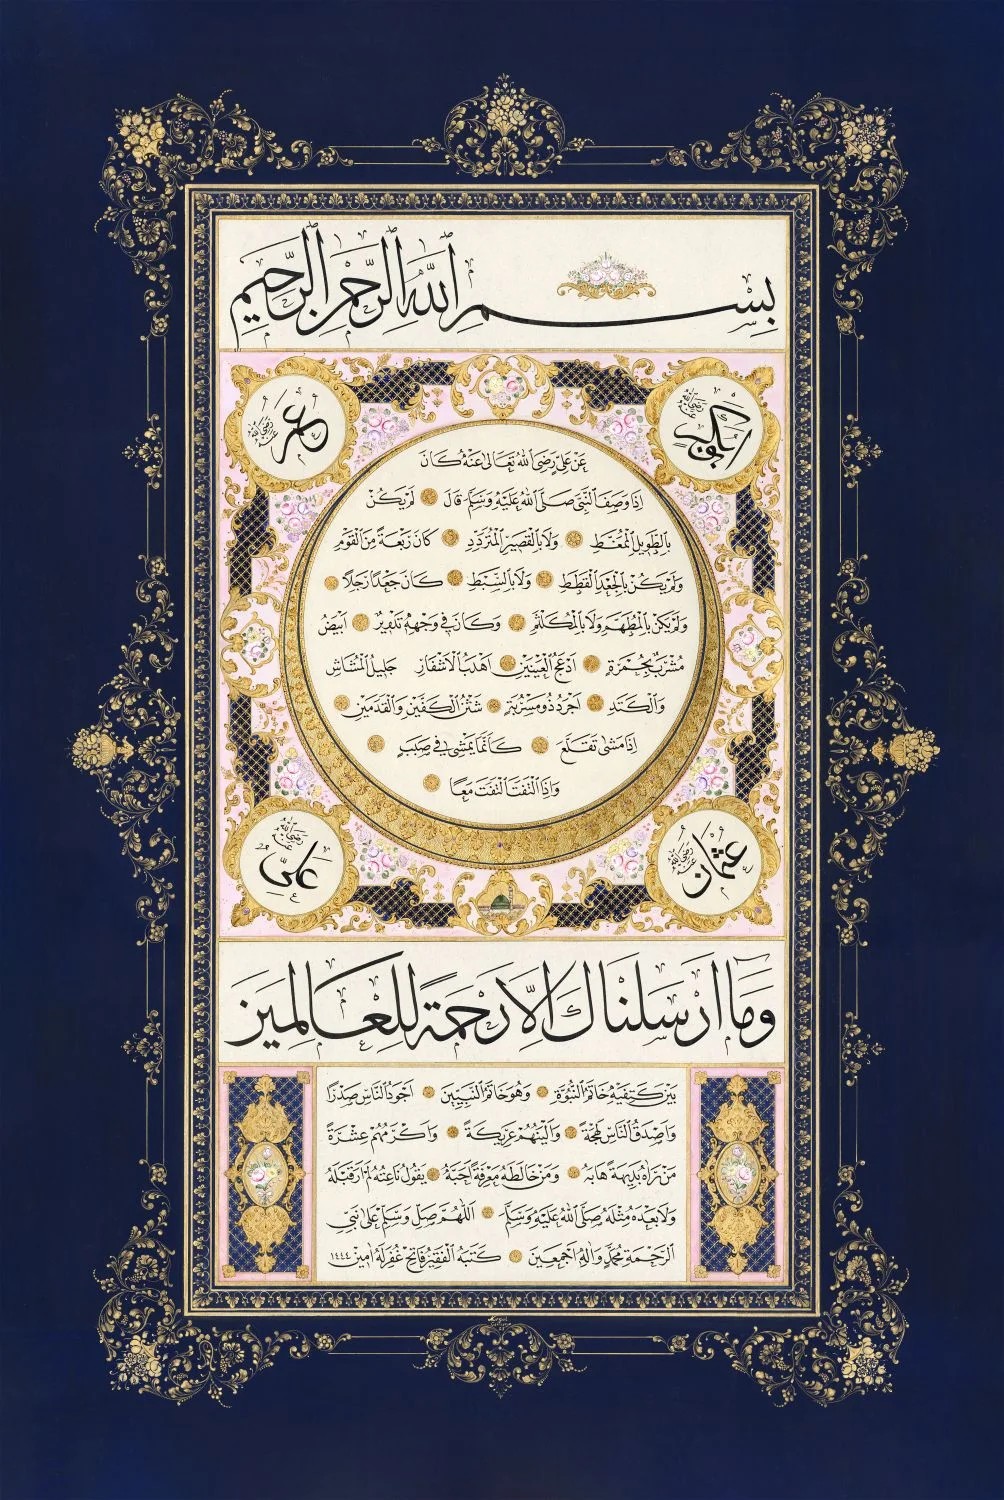 بِسْمِ اللّٰهِ الرَّحْمٰنِ الرَّحِيمِ
ابوبكر رضي الله عنه
عمر رضي الله عنه
عَنْ عَلِيٍّ رَضِيَ اللهُ تَعَالٰى عَنْهُ كَانَ
اِذَا وَصَفَ النَّبِيَّ صَلَّى اللهُ عَلَيْهِ وَسَلَّمَ قَالَ لَمْ يَكُنْ
بِالطَّوِيلِ الْمُمَّغِطِ وَلَا بِالْقَصِيرِ الْمُتَرَدِّدِ كَانَ رَبْعَةً مِنَ الْقَوْمِ
وَلَمْ يَكُنْ بِالْجَعْدِ الْقَطَطِ وَلَا بِالسَّبِطِ كَانَ جَعْدًا رَجِلًا
وَلَمْ يَكُنْ بِالْمُطَهَّمِ وَلَا بِالْمُكَلْثَمِ وَكَانَ فِي وَجْهِهِ تَدْوِيرٌ اَبْيَضُ
مُشْرَبٌ بِحُمْرَةٍ اَدْعَجُ الْعَيْنَيْنِ اَهْدَبُ الْاَشْفَارِ جَلِيلُ الْمُشَاشِ
وَالْكَتَدِ اَجْرَدُ ذُو مَسْرُبَةٍ شَثْنُ الْكَفَّيْنِ وَالْقَدَمَيْنِ
اِذَا مَشٰى تَقَلَّعَ كَاَنَّمَا يَمْشِي فِي صَبَبٍ
وَاِذَا الْتَفَتَ الْتَفَتَ مَعًا
عثمان رضي الله عنه
علي رضي الله عنه
وَمَا اَرْسَلْنَاكَ اِلَّا رَحْمَةً لِلْعَالَمِينَ
بَيْنَ كَتِفَيْهِ خَاتَمُ النُّبُوَّةِ وَهُوَ خَاتَمُ النَّبِيِّينَ اَجْوَدُ النَّاسِ صَدْرًا
وَاَصْدَقُ النَّاسِ لَهْجَةً وَاَلْيَنُهُمْ عَرِيكَةً وَاَكْرَمُهُمْ عِشْرَةً
مَنْ رَاٰهُ بَدِيهَةً هَابَهُ وَمَنْ خَالَطَهُ مَعْرِفَةً اَحَبَّهُ يَقُولُ نَاعِتُهُ لَمْ اَرَ قَبْلَهُ
وَلَا بَعْدَهُ مِثْلَهُ صَلَّى اللهُ عَلَيْهِ وَسَلَّمَ اَللّٰهُمَّ صَلِّ وَسَلِّمْ عَلٰى نَبِيِّ
الرَّحْمَةِ مُحَمَّدٍ وَاٰلِهِ اَجْمَعِينَ كَتَبَهُ الْفَقِيرُ فَاتِحْ غُفِرَ لَهُ اٰمِينَ ١٤٤٤